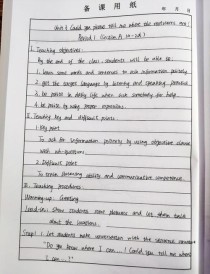 备 课 用 纸
Unit 3 Could you please tell me where the restrooms are?
Period 1 (Section A 1a-2d)
I. Teaching objectives
By the end of the class, students will be able to:
1. learn some words and sentences to ask information politely
2. get the target language by listening and speaking practice
3. be polite in daily life when ask somebody for help
4. be polite by using proper expressions.
II. Teaching key and difficult points
1. Key point
To ask for information politely by using objective clauses
with wh-questions.
2. Difficult point
To train listening ability and communicative competence.
III. Teaching procedures
Warming-up Greeting
Lead-in: Show students some pictures and let them talk
about the locations.
Step 1 Let students make conversation with the sentence
"Do you know where I can...? Could you tell me where
I can...?"